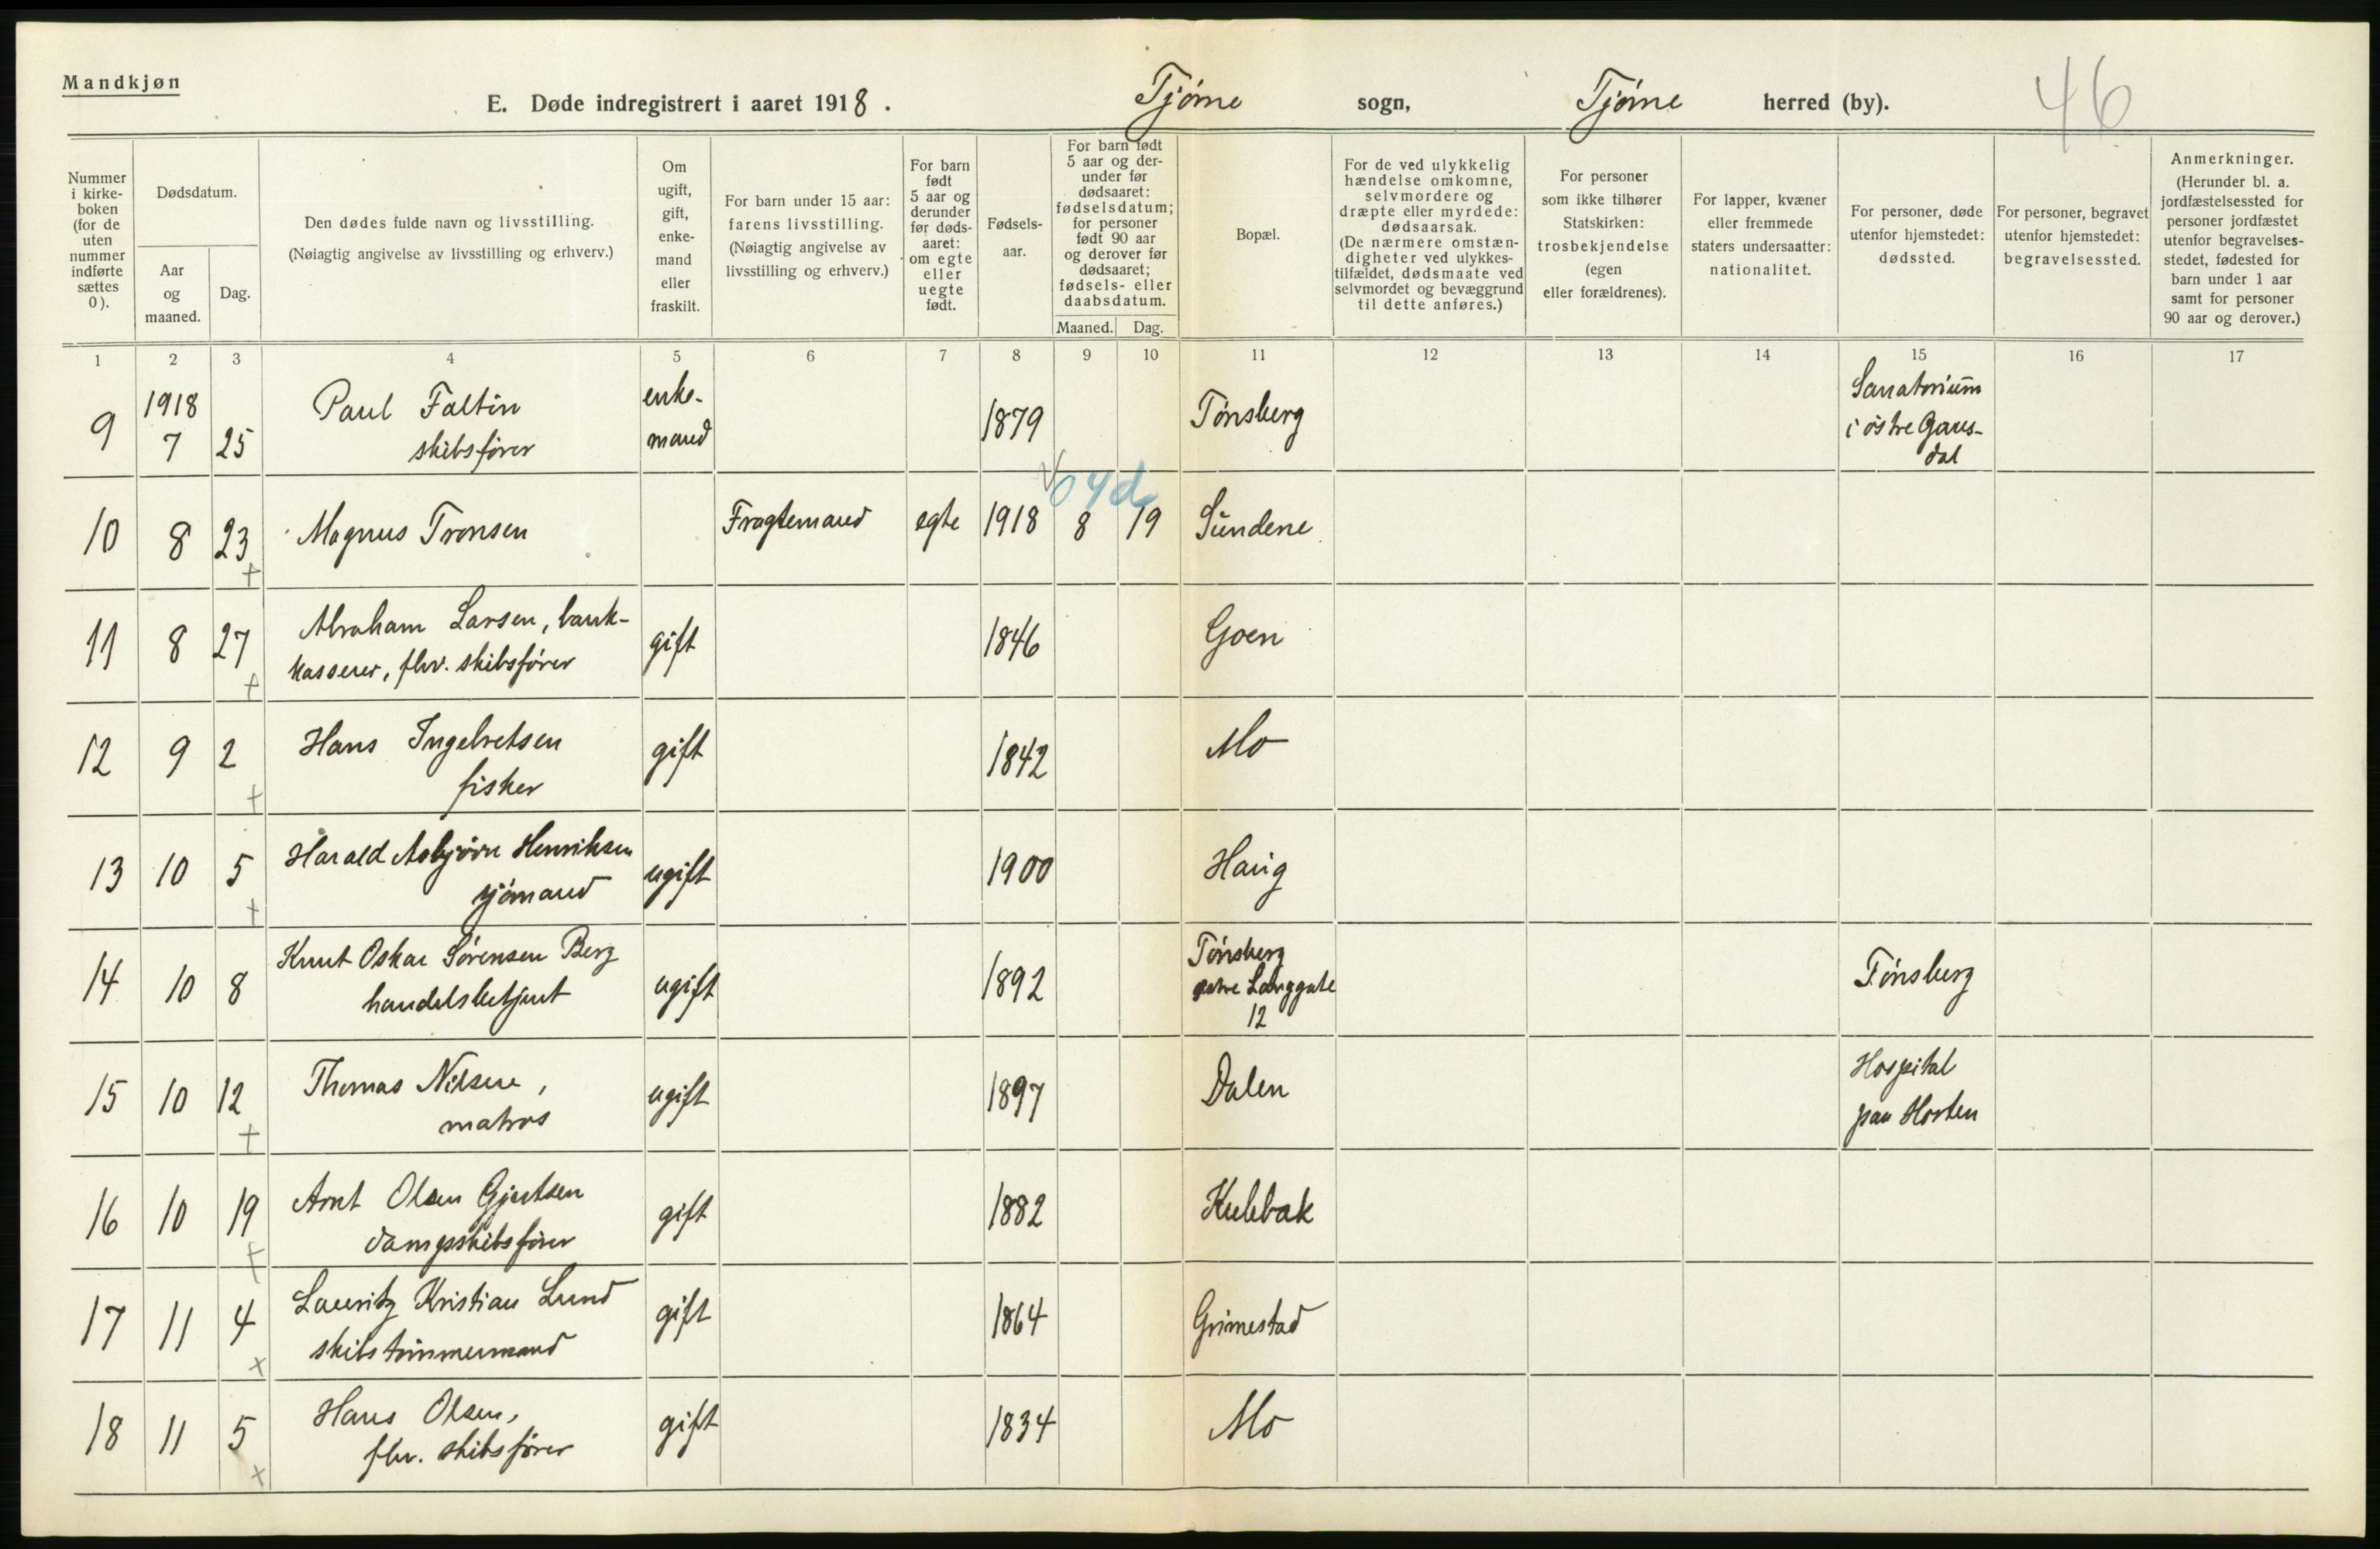 Mandkjøn
E. Døde indregistrert i aaret 1918. Tjøme sogn, Tjøme herred (by). 46
Nummer i kirkeboken (for de uten nummer indførte sættes 0).
Dødsdatum.
Aar og maaned.
Dag.
Den dødes fulde navn og livsstilling.
(Nøiagtig angivelse av livsstilling og erhverv.)
Om ugift, gift, enkemand eller fraskilt.
For barn under 15 aar: farens livsstilling.
(Nøiagtig angivelse av livsstilling og erhverv.)
For barn født 5 aar og derunder før dødsaaret: om egte eller uegte født.
Fødselsaar.
For barn født 5 aar og derunder før dødsaaret: fødselsdatum; for personer født 90 aar og derover før dødsaaret; fødsels- eller daabsdatum.
Maaned. Dag.
Bopæl.
For de ved ulykkelig hændelse omkomne, selvmordere og dræpte eller myrdede: dødsaarsak.
(De nærmere omstændigheter ved ulykkestilfældet, dødsmaate ved selvmordet og bevæggrund til dette anføres.)
For personer som ikke tilhører Statskirken: trosbekjendelse (egen eller forældrenes).
For lapper, kvæner eller fremmede staters undersaatter: nationalitet.
For personer, døde utenfor hjemstedet: dødssted.
For personer, begravet utenfor hjemstedet: begravelsessted.
Anmerkninger.
(Herunder bl. a. jordfæstelsessted for personer jordfæstet utenfor begravelsesstedet, fødested for barn under 1 aar samt for personer 90 aar og derover.)
1 2 3 4 5 6 7 8 9 10 11 12 13 14 15 16 17
9 1918 7 25 Paul Faltin skibsfører enkemand 1879 Tønsberg Sanatorium i østre Gausdal
4d
10 8 23 Magnus Tronsen Fragtemand egte 1918 8 19 Sundene
11 8 27 Abraham Larsen, bankkasserer, fhv. skibsfører gift 1846 Goen
12 9 2 Hans Ingebretsen fisker gift 1842 Mo
13 10 5 Harald Asbjørn Henriksen sjømand ugift 1900 Haug
14 10 8 Knut Oskar Sørensen Berg handelsbetjent ugift 1892 Tønsberg Langgate 12 Tønsberg
15 10 12 Thomas Nilsen, matros ugift 1897 Dalen Hospital paa Horten
16 10 19 Arnt Olsen Gjertsen dampskibsfører gift 1882 Kulebak
17 11 4 Lauritz Kristian Lund skibstømmermand gift 1864 Grimestad
18 11 5 Hans Olsen, fhv. skibsfører gift 1834 Mo